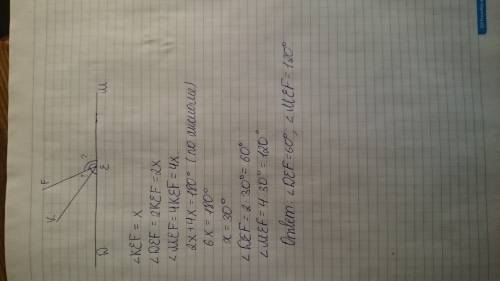 K F
?
D E M
∠KEF = x
∠DEF = 2KEF = 2x
∠MEF = 4KEF = 4x
2x + 4x = 180° (по аксиоме)
6x = 180°
x = 30°
∠DEF = 2·30° = 60°
∠MEF = 4·30° = 120°
Ответ: ∠DEF = 60°, ∠MEF = 120°